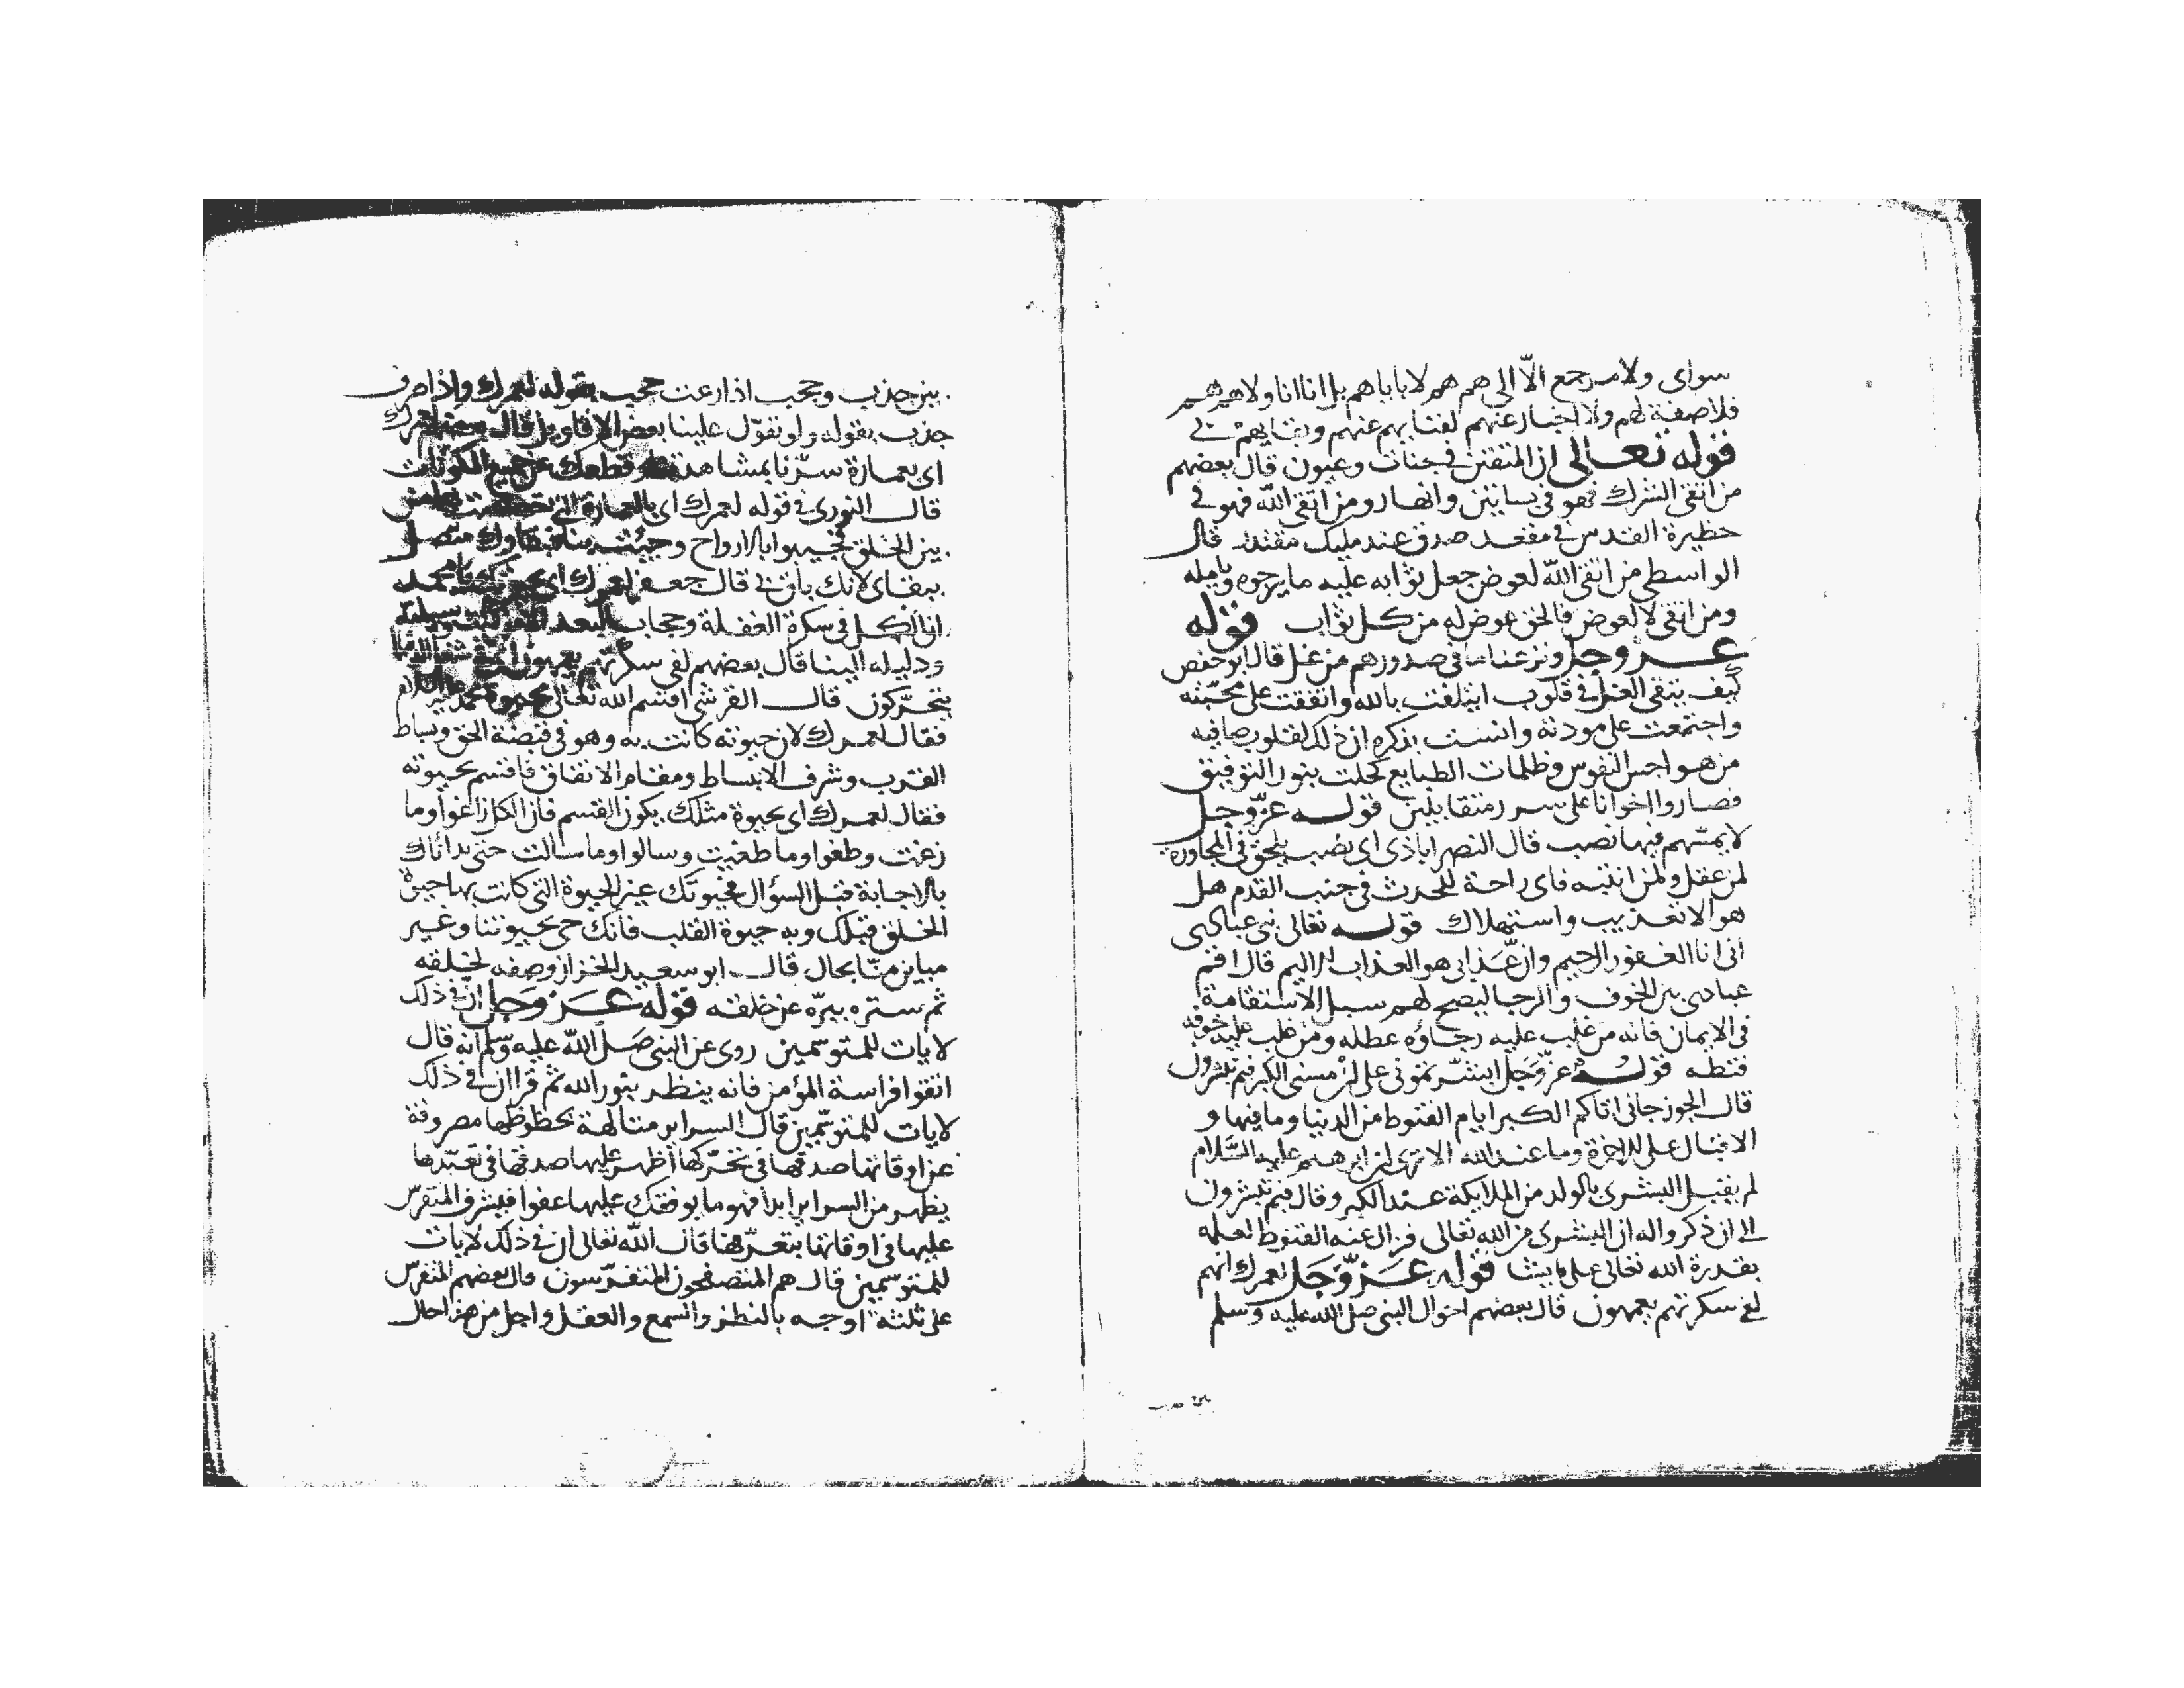 سواى ولا مرجع الّا الى هم هم لا باباهم بل انا انا ولا هم هم
فلا صفة لهم ولا اخبار عنهم لفنايهم عنهم وبقايهم بى
قوله تعالى ان المتقين فى جنات وعيون قال بعضهم
من اتقى الشرك فهو فى بساتين وانهار ومن اتقى الله فهو فى
حظيرة القدس فى مقعد صدق عند مليك مقتدر قال
الواسطى من اتقى الله لعوض جعل ثوابه عليه ما يرجوه ويامله
ومن اتقى لا لعوض فالحق عوض له من كل ثواب قوله
عز وجل ونزعنا ما فى صدورهم من غل قال ابو حفص
كيف يبقى الغل فى قلوب ايتلفت بالله واتفقت على محبّته
واجتمعت على مودته وانست بذكره ان ذلك لقلوب صافيه
من هواجس النفوس وظلمات الطبايع كحلت بنور التوفيق
فصاروا اخوانا على سرر متقابلين قوله عزّ وجل
لا يمسّهم فيها نصب قال النصراباذى اى نصب يلحق فى المجاورة
لمن عقل ولمن انتبه فاى راحة للحدث فى جنب القدم هل
هو الا تعذيب واستهلاك قوله تعالى نبى عبادى
انى انا الغفور الرحيم وان عَذابى هو العذاب الاليم قال اقم
عبادى بين الخوف والرجا ليصح لهم سبل الاستقامة
فى الايمان فانه من غلب عليه رجاؤه عطله ومن غلب عليه خوفه
قنطه قوله عزّ وَجَل ابشّرتمونى على ان مسنى الكبر فبم تبشرون
قال الجوزجانى اتاكم الكبر ايام القنوط من الدنيا وما فيها و
الاقبال على الاخرة وما عند الله الا ترى ان ابرهيم عليه السَّلام
لم يقبل البشرى بالولد من الملايكة عند الكبر وقال فبم تبشرون
الى ان ذكروا له ان البشرى من الله تعالى فزال عنه القنوط لعلمه
بقدرة الله تعالى على ما يشا قوله عَزّ وَجَل لعمرك انهم
لفى سكرتهم يعمهون قال بعضهم احوال النبى صلى الله عليه وسلم
بين جذب وحجب اذا رعت حجب بقوله لعمرك واذا صرف
جذب بقوله ولو تقوّل علينا بعض الاقاويل قال
اى بعمارة سرّنا بمشاهدتنا وقطعك عن جميع
قال النورى فى قوله لعمرك اى بالعمارة التى
بين الخلق فحيوا بالارواح
ببقاى لانك باق بى قال جعفر لعمرك اى بحيوتك يا محمد
ان الكل فى سكرة الغفلة وحجاب البعد
ودليله الينا قال بعضهم لفى سكرتهم يعمهون
يتحرّكون قال القرشى اقسم الله تعالى بحيوة محمد
فقال لعمرك لان حيوته كانت به وهو فى قبضة الحق وبساط
القرب وشرف الانبساط ومقام الاتفاق فاقسم بحيوته
فقال لعمرك اى بحيوة مثلك يكون القسم فان الكل زاغوا وما
زغت وطغوا وما طغيت وسالوا وما سالت حتى بداناك
بالاجابة قبل السؤال فحيوتك غير الحيوة التى كانت بها حيوة
الخلق قبلك وبه حيوة القلب فانك حى بحيوتنا وغير
مباين منّا بحال قال ابو سعيد الخراز وصفه لخلقه
ثم ستره ببرّه عن خلقه قوله عَز وَجل ان فى ذلك
لايات للمتوسمين روى عن النبى صَلّى الله عليه وسّلم انه قال
اتقوا فراسة المؤمن فانه ينظر بنور الله ثم قرا ان فى ذلك
لايات للمتوسّمين قال السراير متالهة بحظوظها مصروفة
عن اوقاتها صدقها فى تحرّكها اظهر عليها صدقها فى تعبّدها
يظهر من السراير ابدا فهو ما يوقفك عليها عفوا فيشرف المتفرّس
عليها فى اوقاتها بتعرّفها قال الله تعالى ان فى ذلك لايات
للمتوسمين قال هم المتصفحون المتفرّسون قال بعضهم المتفرّس
على ثلثة اوجه بالنظر والسمع والعقل واجل من هذا حال